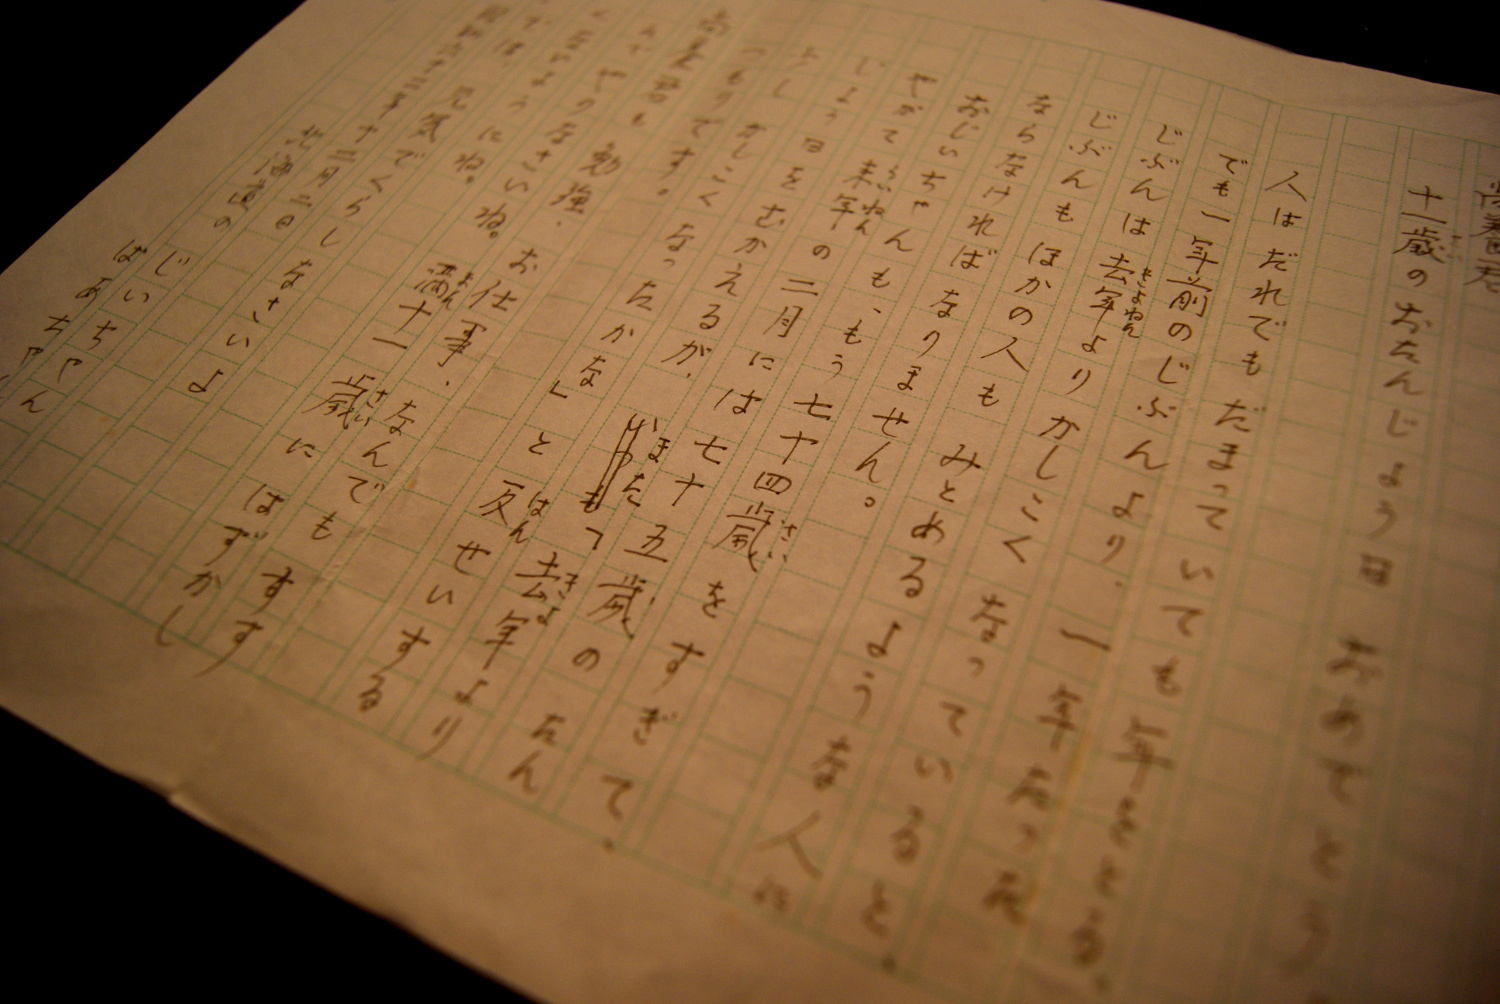 君
十一歳のおたんじょう日 おめでとう
人はだれでも だまっていても 年をとる。
でも一年前のじぶんより、一年たった
じぶんは去年より かしこく なっていると
じぶんもほかの人も みとめるような人に
ならなければ なりません。
おじいちゃんも、もう七十四歳をすぎて、
やがて来年の二月には七十五歳のたん
じょう日をむかえるが、 去年より
少し かしこく なったかな」と反せいする
つもりです。
君も 勉強、お仕事、なんでも
やりなさいね。満十一歳に はずかし
くないようにね。
では 元気でくらしなさいよ
昭和六十二年十二月二日
北海道の
じいちゃん
ばあちゃん